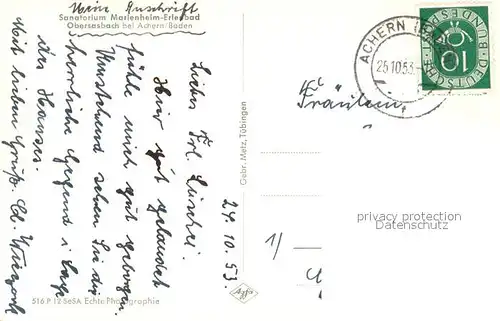 Meine Anschrift
Sanatorium Marienheim-Erlenbad
Obersasbach bei Achern/Baden
24.10.53.
Liebes Frl. Lüschei!
Hier gut gelandet
fühle mich gut geborgen.
Umstehend sehen Sie die
herrliche Gegend u. Lage
des Hauses.
Mit lieben Gruß. Cl.
516 P 12 SeSA Echte Photographie
Gebr. Metz, Tübingen
Agfa
ACHERN
25.10.53
DEUTSCHE BUNDESPOST
10
Fräulein
1/
privacy protection
Datenschutz